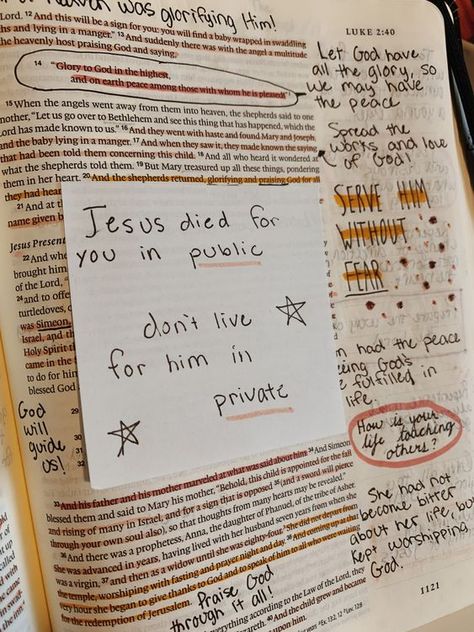 n was glorifying Him!
LUKE 2:40
Lord. 12 And this will be a sign for you: you will find a baby wrapped in swaddling
hs and lying in a manger." 13 And suddenly there was with the angel a multitude
he heavenly host praising God and saying,
14 "Glory to God in the highest,
and on earth peace among those with whom he is pleased!"
15 When the angels went away from them into heaven, the shepherds said to one
nother, "Let us go over to Bethlehem and see this thing that has happened, which the
Lord has made known to us." 16 And they went with haste and found Mary and Joseph,
and the baby lying in a manger. 17 And when they saw it, they made known the saying
that had been told them concerning this child. 18 And all who heard it wondered at
what the shepherds told them. 19 But Mary treasured up all these things, pondering
them in her heart. 20 And the shepherds returned, glorifying and praising God for all
they had hear
21 And at t
name given b
Jesus Present
22 And whe
brought him
of the Lord,
24 and to offe
turtledoves, o
was Simeon,
Israel, and th
Holy Spirit th
came in the
to do for him
blessed God
29
30
31
32
Jesus died for
you in public
don't live
for him in
private
Let God have
all the glory, so
we may have
the peace
Spread the
works and love
of God!
SERVE HIM
WITHOUT
FEAR
n had the peace
eing God's
e fulfilled in
life.
How is your
life teaching
others?
She had not
become bitter
about her life, but
kept worshipping
God.
God
will
guide
us!
33 And his father and his mother marveled at what was said about him. 34 And Simeon
blessed them and said to Mary his mother, "Behold, this child is appointed for the fall
and rising of many in Israel, and for a sign that is opposed 35 (and a sword will pierce
through your own soul also), so that thoughts from many hearts may be revealed."
36 And there was a prophetess, Anna, the daughter of Phanuel, of the tribe of Asher.
She was advanced in years, having lived with her husband seven years from when she
was a virgin, 37 and then as a widow until she was eighty-four. She did not depart from
the temple, worshiping with fasting and prayer night and day. 38 And coming up at that
very hour she began to give thanks to God and to speak of him to all who were waiting
for the redemption of Jerusalem.
Praise God
through it all!
everything according to the Law of the Lord, they
azareth. 40 And the child grew and became
1121